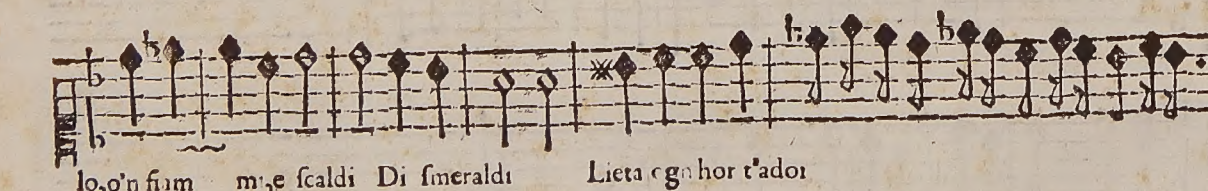 lo,o'n fiam m',e ſcaldi Di ſmeraldi Lieta ogn hor t'ador